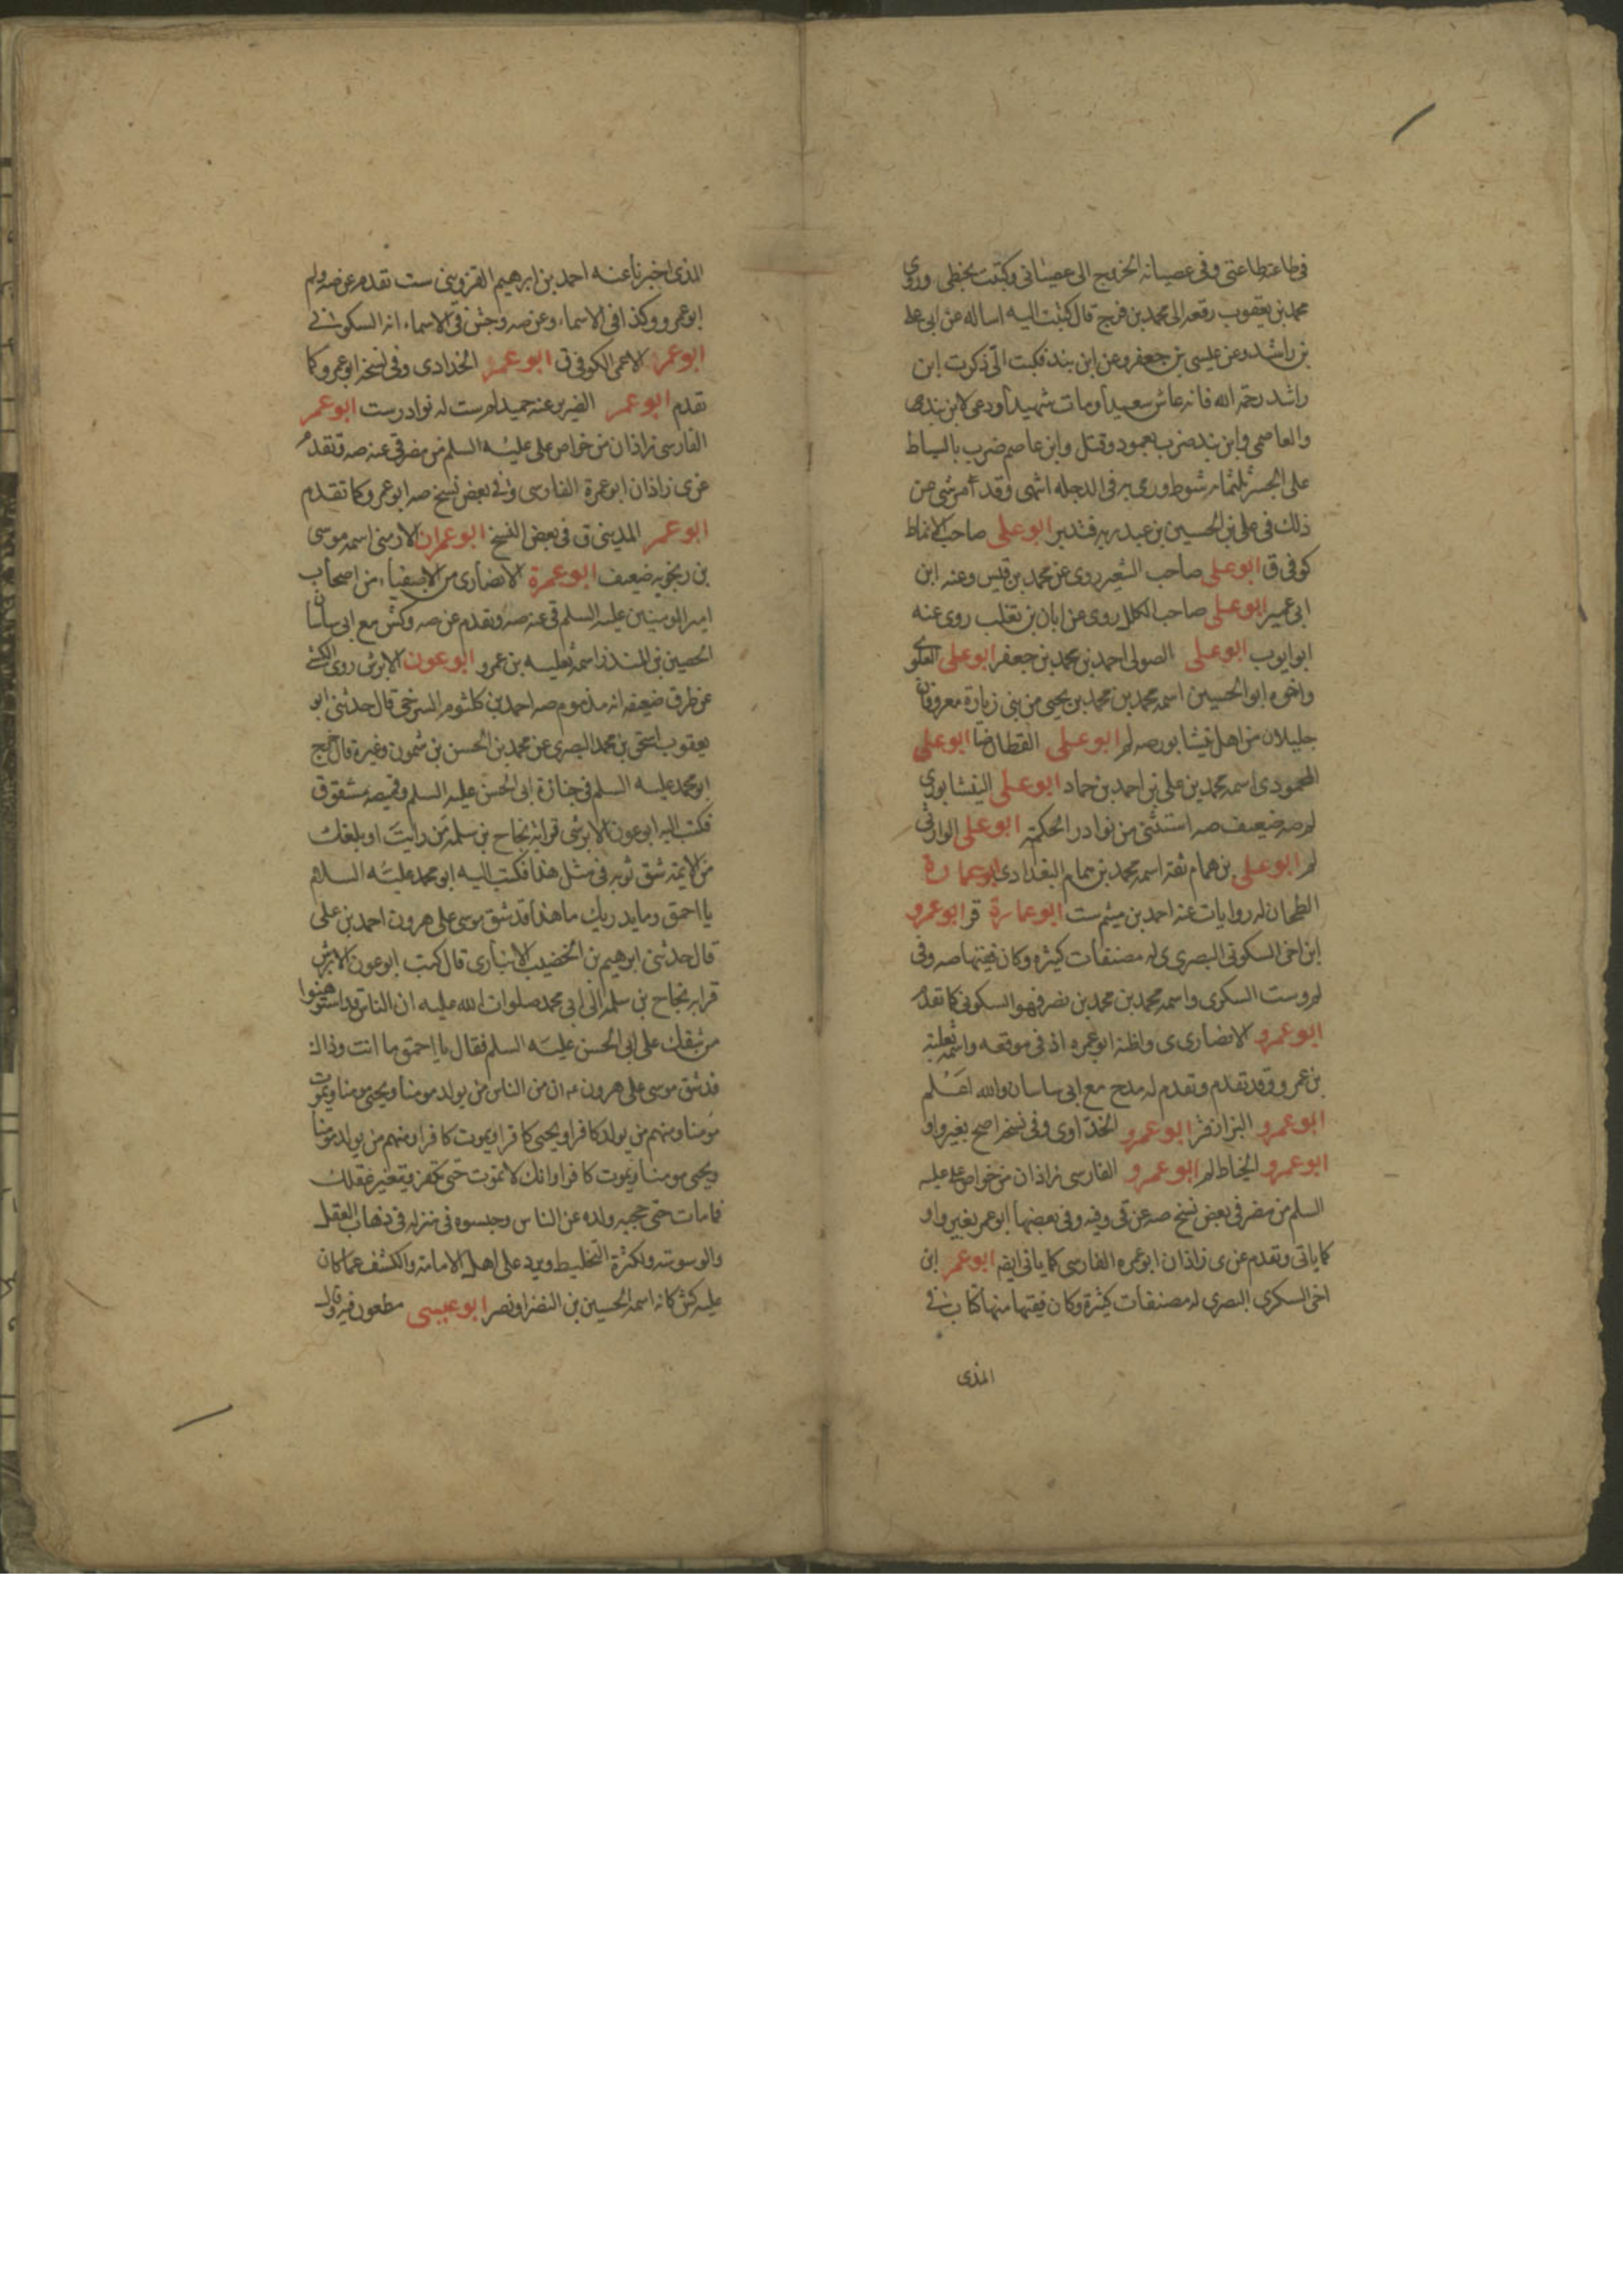 في طاعته طاعتي وفي عصيانه الخروج الى عصياني وكتبت بخطي وروى
محمد بن يعقوب رفعه الى محمد بن فرج قال كتبت اليه اساله عن ابي علي
بن راشد وعن عيسى بن جعفر وعن ابن بند فكتب الّي ذكرت ابن
راشد رحمة الله فانه عاش سعيداً ومات شهيداً ودعى لابن بند
والعاصمي وابن بند ضرب بعمود وقتل وابن عاصم ضرب بالسياط
على الجسر ثلثمائه شوط ورمى به في الدجله انتهى وقد مر شي من
ذلك في علي بن الحسين بن عبد ربه فتدبر ابو على صاحب الانماط
كوفي ق ابو على صاحب الشعير روى عن محمد بن قيس وعنه ابن
ابي عمير ابو على صاحب الكلل روى عن ابان بن تغلب روى عنه
ابو ايوب ابو على الصولي احمد بن محمد بن جعفر ابو على العلوي
واخوه ابو الحسين اسمه محمد بن محمد بن يحيى من بني زبارة معروفان
جليلان من اهل نيشابور صه لم ابو على القطان ابو على
المحمودي اسمه محمد بن علي بن احمد بن حماد ابو على النيشابوري
لم صه ضعيف صه استثنى من نوادر الحكمة ابو على الوارثي
لم ابو على بن همام ثقة اسمه محمد بن همام البغدادي ابو عمارة
الطحان له روايات عنه احمد بن ميثم ست ابو عمارة قر ابو عمرو
ابن اخي السكوني البصري ى له مصنفات كثيره وكان فقيها صه وفي
لم وست السكري واسمه محمد بن محمد بن نصر فهو السكوني كما تقدم
ابو عمرو الانصاري ى واظنه ابو عمره اذ في موقعه واسمه ثعلبة
بن عمرو وقد تقدم وتقدم له مدح مع ابي ساسان والله اعلم
ابو عمرو البزاز قر ابو عمرو الحذاوى وفي نسخه اصح بغير واو
ابو عمرو الخياط لم ابو عمرو الفارسي زاذان من خواص علي عليه
السلم من مضر في بعض نسخ صه عن قى وفيه وفي بعضها ابو عمر بغير واو
كما ياتي وتقدم عن ى زاذان ابو عمره الفارسي كما ياتي ايضا ابو عمر ابن
اخي السكري البصري له مصنفات كثيرة وكان فقيها منها كتاب في
الذى
الذى اخبرنا عنه احمد بن ابرهيم القزويني ست تقدم عن صه ولم
ابو عمرو وكذا في الاسماء وعن صه وجش في الاسماء انه السكوني
ابو عمر الاعمى الكوفي ق ابو عمر الحدادى وفي نسخه ابو عمرو كما
تقدم ابو عمر الضرير عنه حميد لم ست له نوادر ست ابو عمر
الفارسي زاذان من خواص علي عليه السلم من مضر قى عنه صه وتقدم
عن ى زاذان ابو عمرة الفارسي وفي بعض نسخ صه ابو عمرو كما تقدم
ابو عمر المديني ق في بعض النسخ ابو عمران الارمني اسمه موسى
بن رنجويه ضعيف ابو عمرة الانصاري من الاصفياء من اصحاب
امير المومنين عليه السلم قى عنه صه وتقدم عن صه وكش مع ابي ساسان
الحصين بن المنذر اسمه ثعلبه بن عمرو ابو عون الابرش روى الكشي
عن طرق ضعيفه انه مذموم صه احمد بن كلثوم السرخي قال حدثني ابو
يعقوب اسحق بن محمد البصري عن محمد بن الحسن بن شمون وغيره قال خرج
ابو محمد عليه السلم في جنازة ابي الحسن عليه السلم وقميصه مشقوق
فكتب اليه ابو عون الابرش قرابة نجاح بن سلمة من رايت او بلغك
من الايمه شق ثوبه في مثل هذا فكتب اليه ابو محمد عليه السلام
يا احمق وما يدريك ما هذا قد شق موسى على هرون احمد بن علي
قال حدثني ابرهيم بن الخضيب الانباري قال كتب ابو عون الابرش
قرابه نجاح بن سلمه الى ابي محمد صلوات الله عليه ان الناس قد استوهنوا
من شقك على ابي الحسن عليه السلم فقال يا احمق ما انت وذاك
قد شق موسى على هرون ان من الناس من يولد مومنا ويحيى مومنا ويموت
مومنا ومنهم من يولد كافرا ويحيى كافرا ويموت كافرا ومنهم من يولد مومنا
ويحيى مومنا ويموت كافرا وانك لا تموت حتى تكفر ويتغير عقلك
فما مات حتى حجبه ولده عن الناس وحبسوه في منزله في ذهاب العقل
والوسوسة ولكثرة التخليط ويرد على اهل الامامة والكشف عما كان
عليه كش كانه اسمه الحسين بن النضر او نصر ابو عيسى مطعون فيه وقال